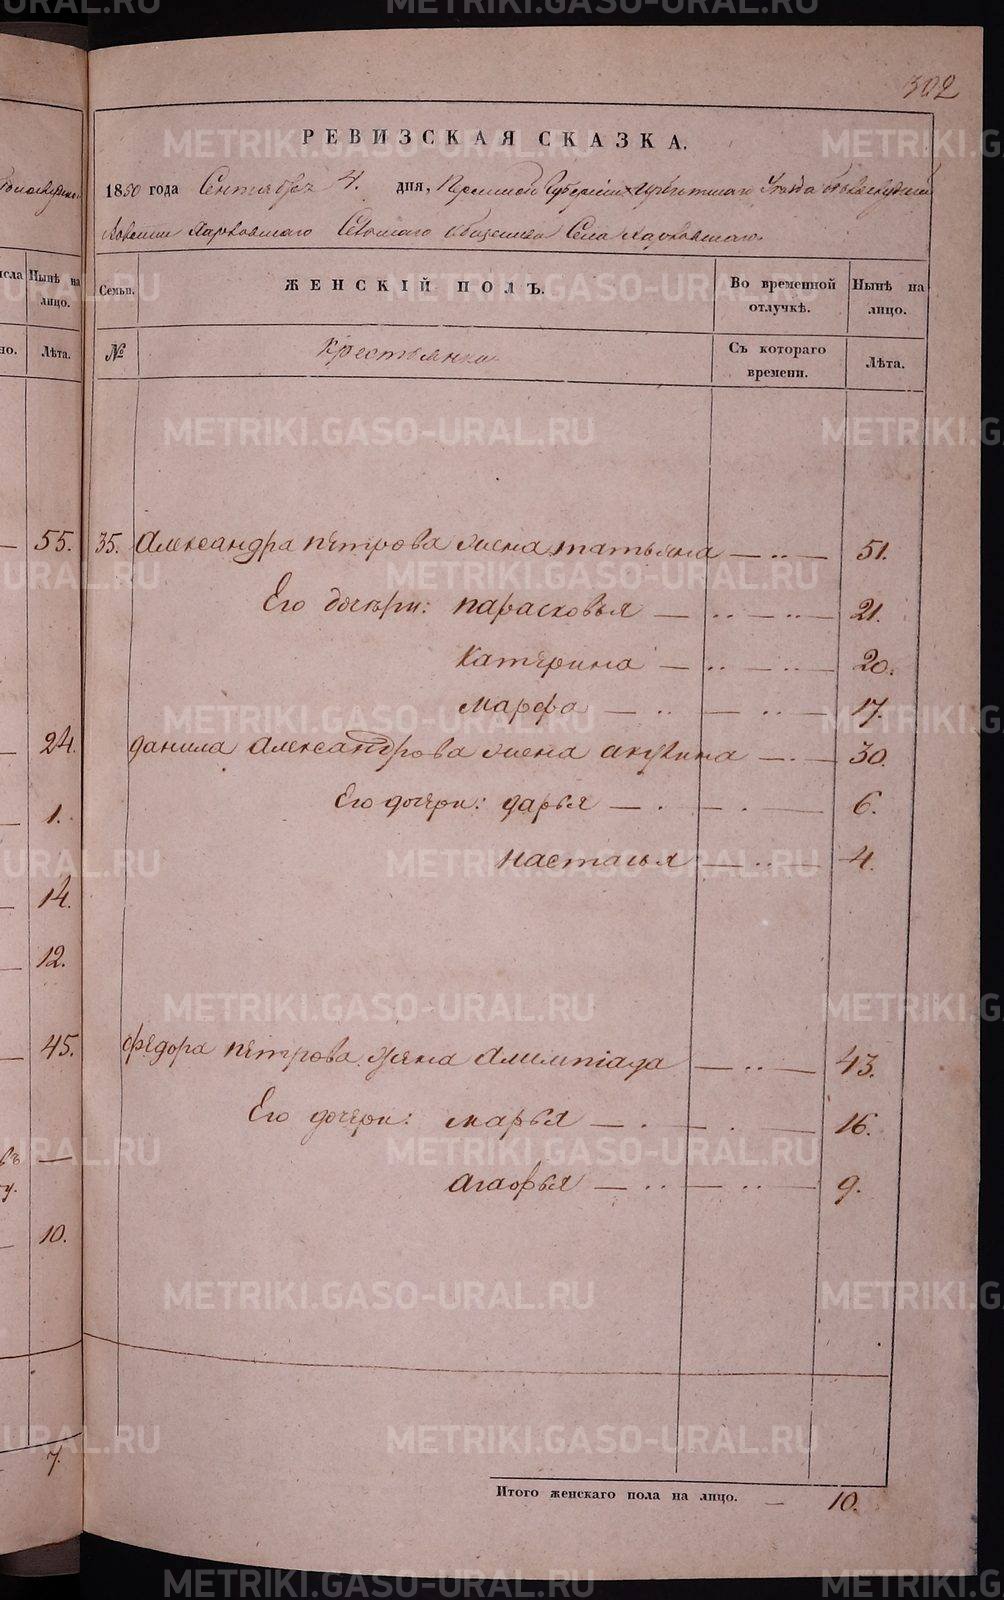 302
РЕВИЗСКАЯ СКАЗКА.
1850 года Сентября 4. дня, Пермской Губернии Ирбитскаго Уезда
Волости Харловскаго Сельскаго общества Села Харловскаго
Семьи. ЖЕНСКІЙ ПОЛЪ. Во временной отлучкѣ. Нынѣ на лицо.
№ Крестьянка Съ котораго времени. Лѣта.
35. Александра петрова жена татьяна — 51.
Его дочери: парасковья — 21.
Катерина — 20.
марфа — 17.
данила Александрова жена акулина — 30.
Его дочери: дарья — 6.
настасья — 4.
Федора петрова жена Алимпіада — 43.
Его дочери: марья — 16.
агафья — 9.
Итого женскаго пола на лицо. — 10.
исла Нынѣ на лицо.
но. Лѣта.
55.
24.
1.
14.
12.
45.
10.
7.
METRIKI.GASO-URAL.RU